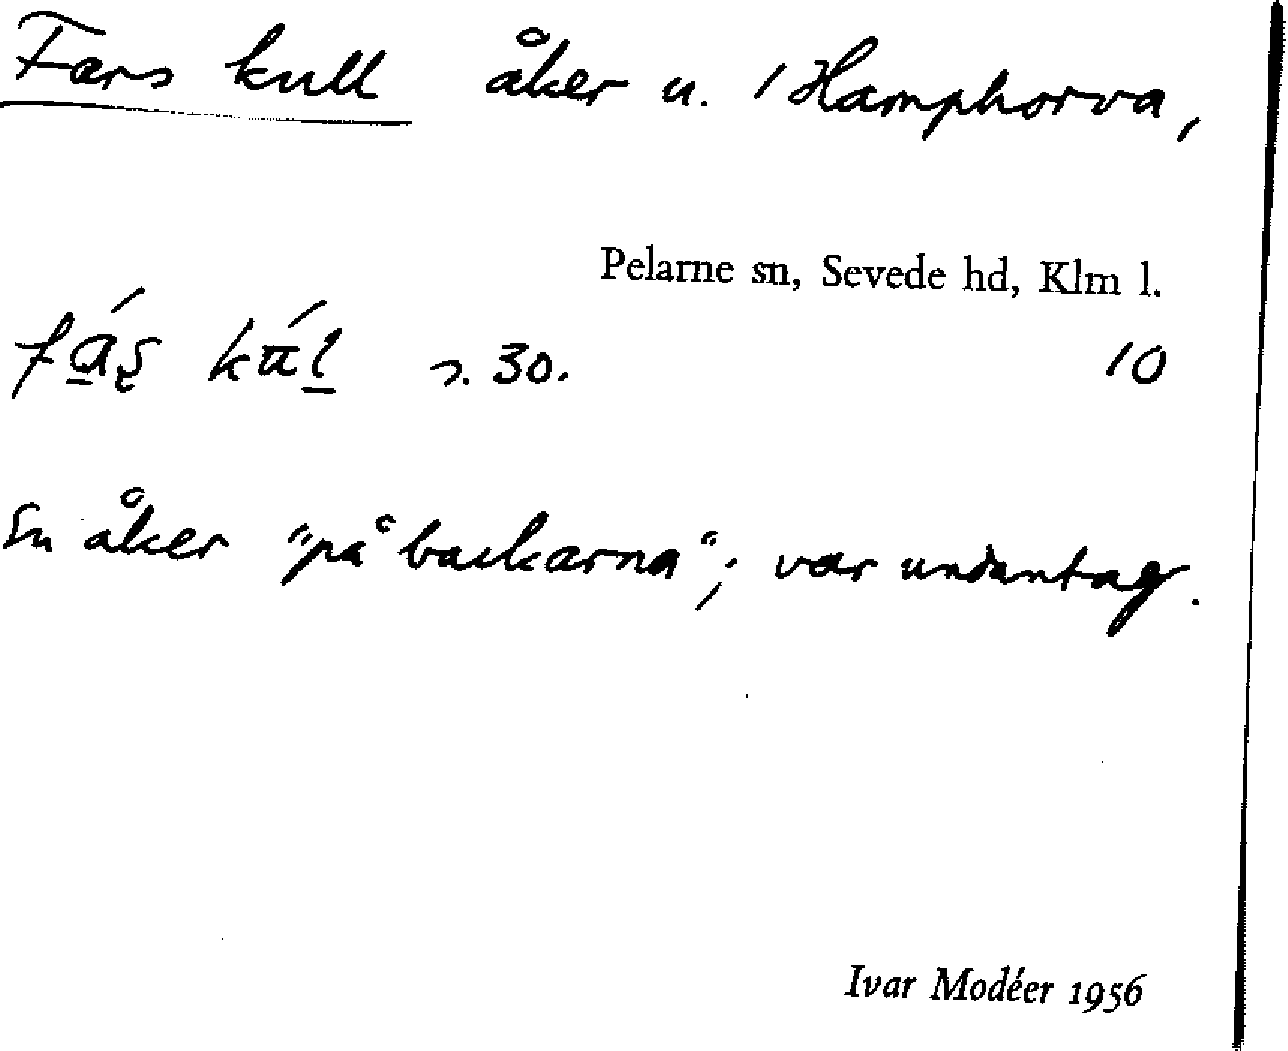 Fars kull åker u. 1 Hamphorva,
Pelarne sn, Sevede hd, Klm l.
fá̱ʂ kúḻ s. 30. 10
En åker "på backarna"; var undantag.
Ivar Modéer 1956